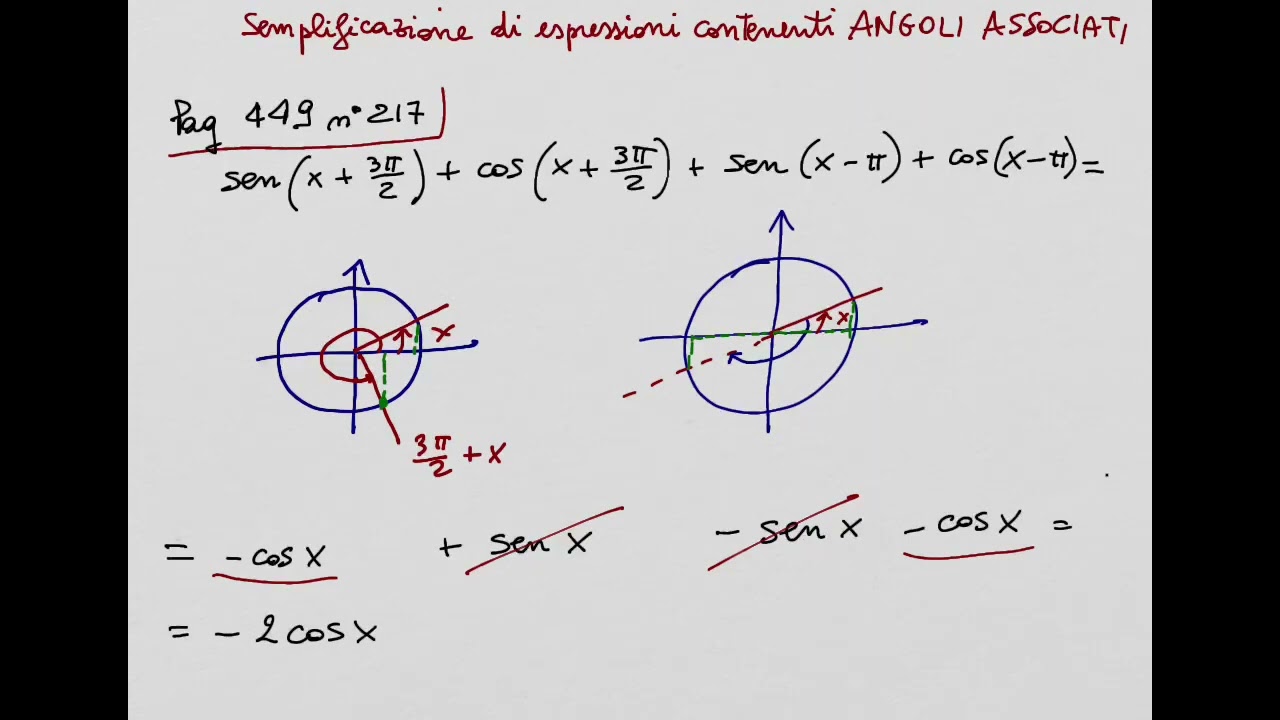 Semplificazione di espressioni contenenti ANGOLI ASSOCIATI
Pag 449 n° 217
sen(x + 3π/2) + cos(x + 3π/2) + sen(x - π) + cos(x - π) =
x
x
3π/2 + x
= - cos x + sen x - sen x - cos x =
= - 2 cos x